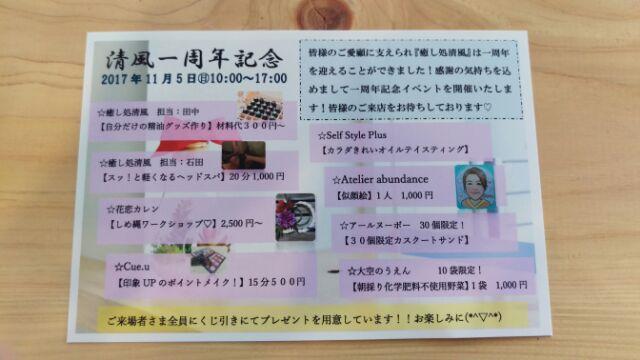 清風一周年記念
2017年11月5日㊐10:00～17:00
皆様のご愛顧に支えられ『癒し処清風』は一周年
を迎えることができました！感謝の気持ちを込
めまして一周年記念イベントを開催いたしま
す！皆様のご来店をお待ちしております♡
☆癒し処清風　担当：田中
【自分だけの精油グッズ作り】材料代３００円～
☆癒し処清風　担当：石田
【スッ！と軽くなるヘッドスパ】20分1,000円
☆花恋カレン
【しめ縄ワークショップ♡】2,500円～
☆Cue.u
【印象UPのポイントメイク！】15分５００円
☆Self Style Plus
【カラダきれいオイルテイスティング】
☆Atelier abundance
【似顔絵】1人　1,000円
☆アールヌーボー　30個限定！
【３０個限定カスクートサンド】
☆大空のうえん　10袋限定！
【朝採り化学肥料不使用野菜】1袋　1,000円
ご来場者さま全員にくじ引きにてプレゼントを用意しています！！お楽しみに(*^▽^*)